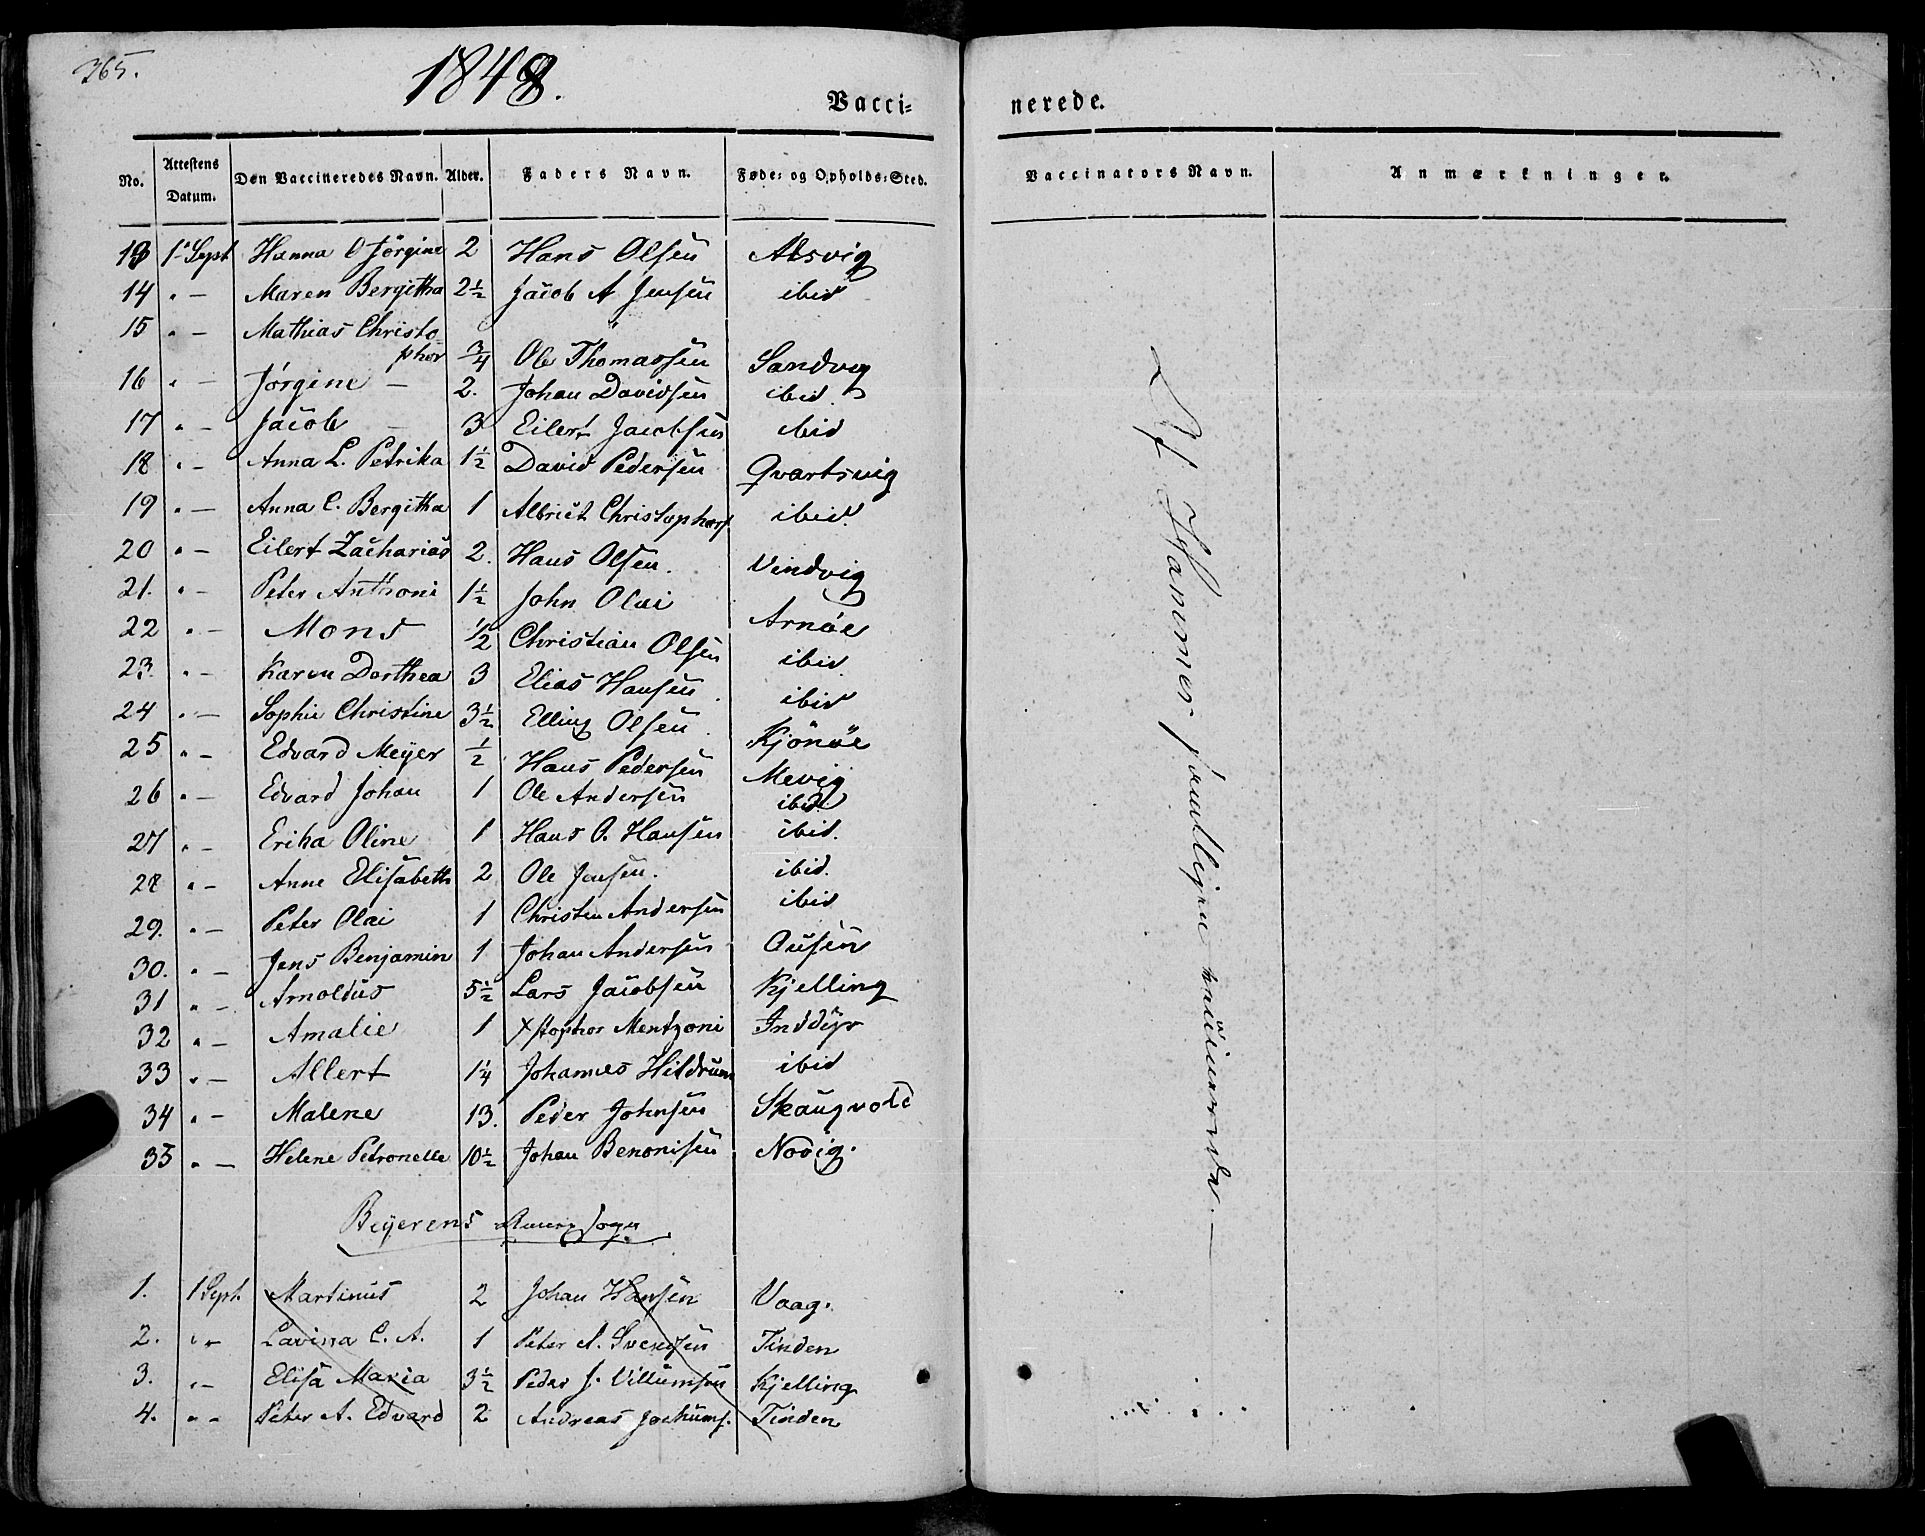 365.
1848.
Vacci= nerede.
No. Attestens Datum. Den Vaccineredes Navn. Alder. Faders Navn. Føde= og Opholds=Sted. Vaccinators Navn. Anmærkninger.
13 1 Sept Hanna O Jörgine 2 Hans Olsen Alsvig
14 " — Maren Bergitha 2½ Jacob A Jensen ibid
15 " — Mathias Christo-
phor ¾ Ole Thomassen Sandvig
16 " — Jörgine — 2. Johan Davidsen ibid.
17 " — Jacob — 3 Eilert Jacobsen ibid
18 " — Anna L. Petrika 1½ David Pedersen Qvartsvig
19 " — Anna C. Bergitha 1 Albrict Christophers. ibid.
20 " — Eilert Zacharias 2. Hans Olsen. Vindvig
21. " — Peter Anthoni 1½ John Olai Arnöe
22 " — Mons ½ Christian Olsen ibid
23. " — Karen Dorthea 3 Elias Hansen ibid
24 " — Sophie Christine 3½ Elling Olsen Kjönöe
25 " — Edvard Meyer ½ Hans Pedersen Mevig
26 " — Edvard Johan 1 Ole Andersen ibid
27 " — Erika Oline 1 Hans O. Hansen ibid.
28 " — Anne Elisabeth 2 Ole Jensen. ibid.
29. " — Peter Olai 1 Christen Andersen ibid
30. " — Jens Benjamin 1 Johan Andersen Ousen
31 " — Arnoldus 5½ Lars Jacobsen Kjelling
32 " — Amalie 1 Xstophor Mentzoni Inddyr
33 " — Allert 1¼ Johannes Hildrum ibid
34 " — Malene 13. Peder Johnsen Skaugvold
35 " — Helene Petronelle 10½ Johan Benonisen Novig.
Beyerens Annex Sogn
1. 1 Sept. Martinus 2 Johan Hansen Vaag.
2. " — Lavina C. A. 1 Peter A. Svendsen Tinden
3. " — Elisa Maria 3½ Peder J. Villumsen Kjelling
4. " — Peter A. Edvard 2 Andreas Jochums. Tinden
Hammer